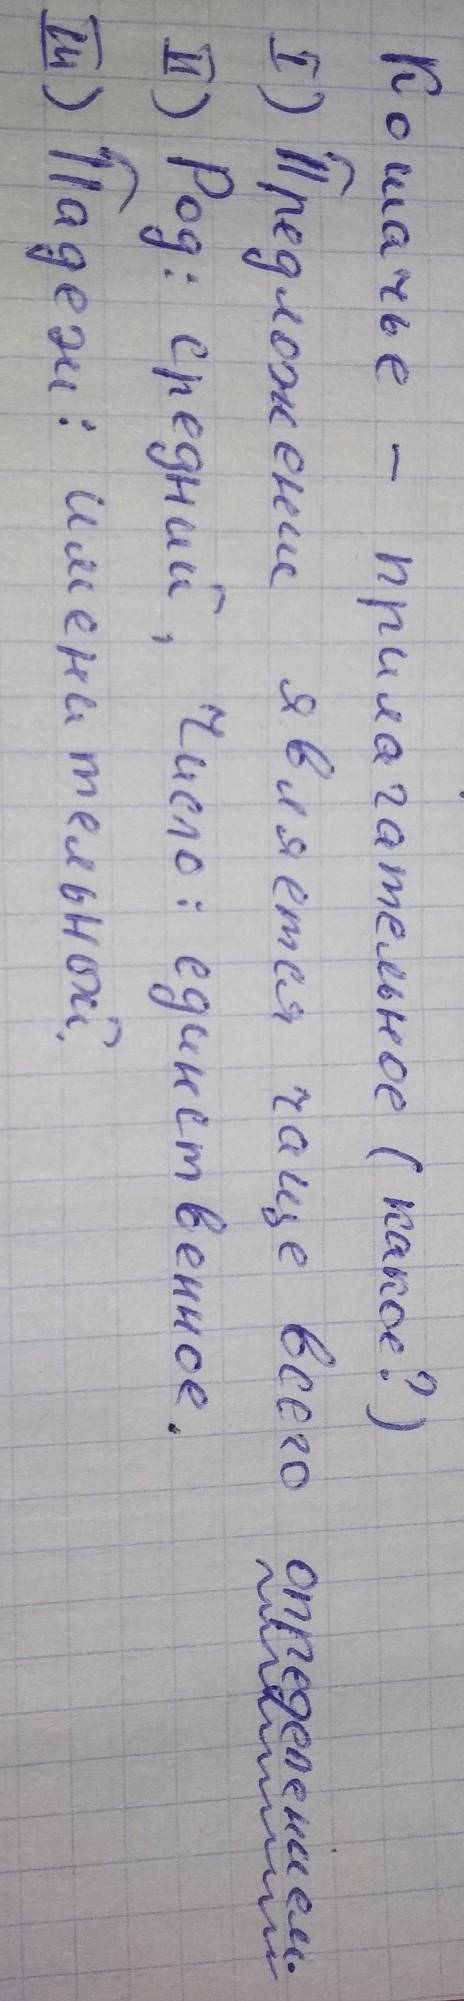 Кошачье – прилагательное (какое?)
I) Предложении является чаще всего определением.
II) Род: средний, Число: единственное.
III) Падеж: именительной.